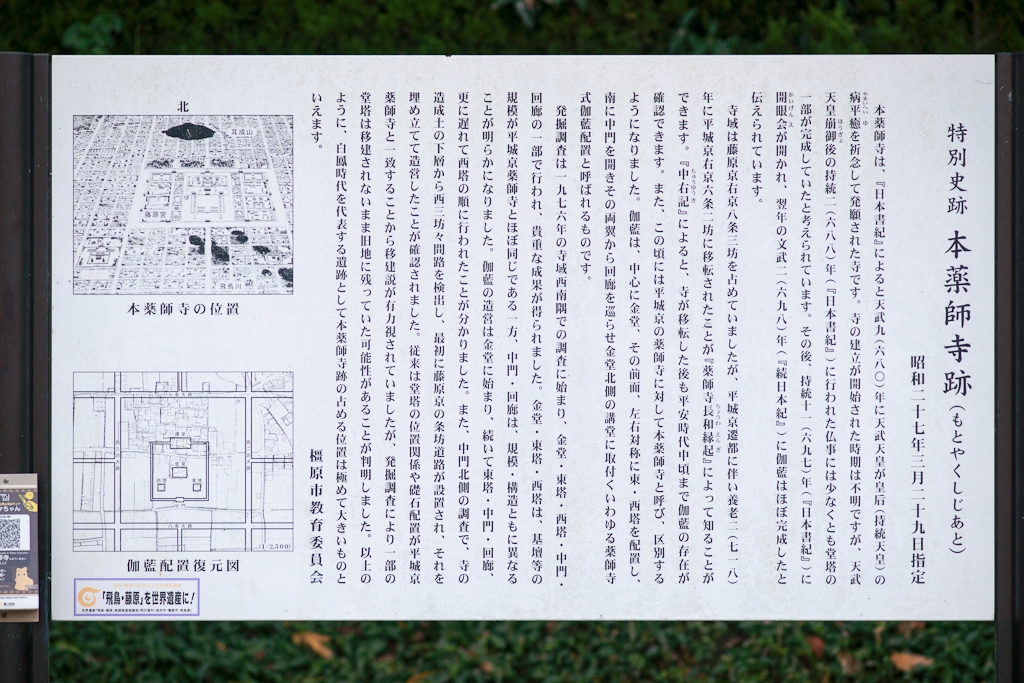 特別史跡 本薬師寺跡(もとやくしじあと)
昭和二十七年三月二十九日指定
本薬師寺は、『日本書紀』によると天武九(六八〇)年に天武天皇が皇后(持統天皇)の
病平癒を祈念して発願された寺です。寺の建立が開始された時期は不明ですが、天武
天皇崩御後の持統二(六八八)年(『日本書紀』)に行われた仏事には少なくとも堂塔の
一部が完成していたと考えられています。その後、持統十一(六九七)年(『日本書紀』)に
開眼会が開かれ、翌年の文武二(六九八)年(『続日本紀』)に伽藍はほぼ完成したと
伝えられています。
寺域は藤原京右京八条三坊を占めていましたが、平城京遷都に伴い養老二(七一八)
年に平城京右京六条二坊に移転されたことが『薬師寺長和縁起』によって知ることが
できます。『中右記』によると、寺が移転した後も平安時代中頃まで伽藍の存在が
確認できます。また、この頃には平城京の薬師寺に対して本薬師寺と呼び、区別する
ようになりました。伽藍は、中心に金堂、その前面、左右対称に東・西塔を配置し、
南に中門を開きその両翼から回廊を巡らせ金堂北側の講堂に取付くいわゆる薬師寺
式伽藍配置と呼ばれるものです。
発掘調査は一九七六年の寺域西南隅での調査に始まり、金堂・東塔・西塔・中門・
回廊の一部で行われ、貴重な成果が得られました。金堂・東塔・西塔は、基壇等の
規模が平城京薬師寺とほぼ同じである一方、中門・回廊は、規模・構造ともに異なる
ことが明らかになりました。伽藍の造営は金堂に始まり、続いて東塔・中門・回廊、
更に遅れて西塔の順に行われたことが分かりました。また、中門北側の調査で、寺の
造成土の下層から西三坊々間路を検出し、最初に藤原京の条坊道路が設置され、それを
埋め立てて造営したことが確認されました。従来は堂塔の位置関係や礎石配置が平城京
薬師寺と一致することから移建説が有力視されていましたが、発掘調査により一部の
堂塔は移建されないまま旧地に残っていた可能性があることが判明しました。以上の
ように、白鳳時代を代表する遺跡として本薬師寺跡の占める位置は極めて大きいものと
いえます。
橿原市教育委員会
北
耳成山
藤原宮
飛鳥川
本薬師寺の位置
(1/2,500)
伽藍配置復元図
「飛鳥・藤原」を世界遺産に!